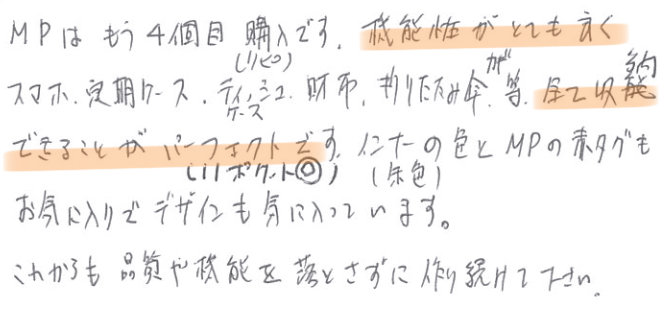 MPはもう4個目購入です。機能性がとても良く
(リピ)
スマホ、定期ケース、ティッシュケース、財布、折りたたみ傘、等、全て収納
が
できることがパーフェクトです。インナーの色とMPの赤タグも
(11ポケット◎) (朱色)
お気に入りでデザインも気に入っています。
これからも品質や機能を落とさずに作り続けて下さい。